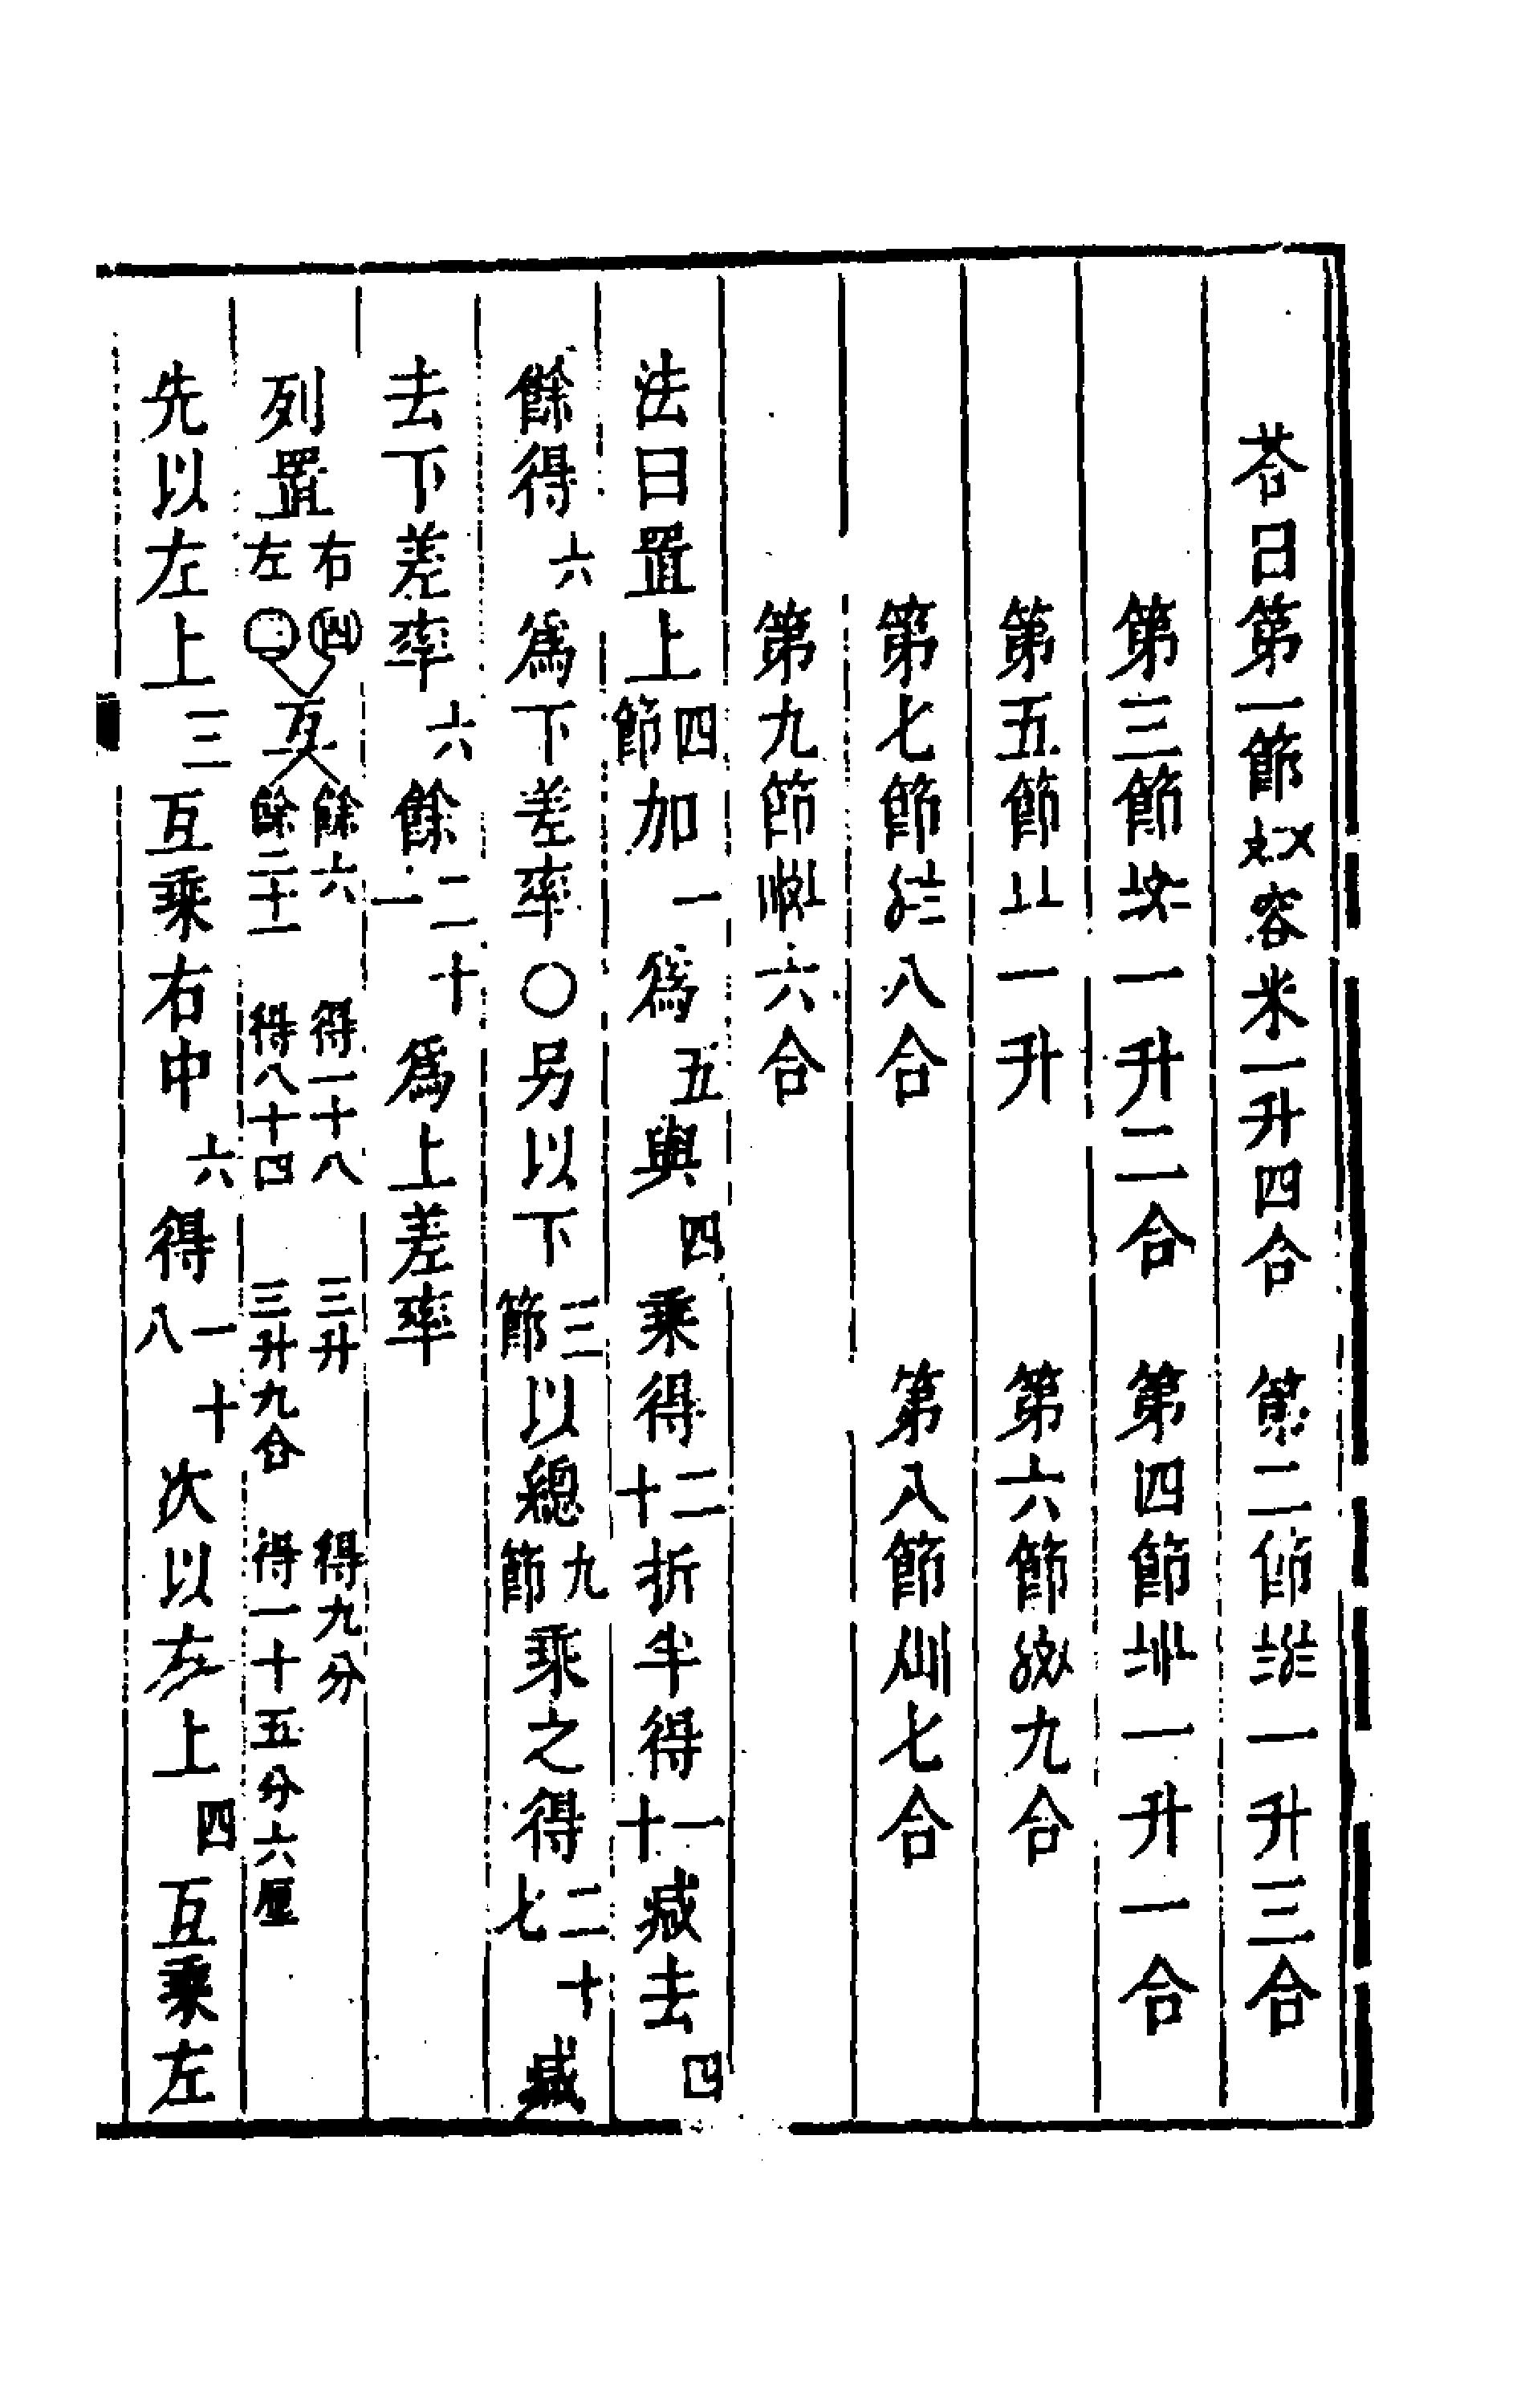 荅曰第一節容米一升四合　第二節一升三合
第三節一升二合　第四節一升一合
第五節一升　第六節九合
第七節八合　第八節七合
第九節六合
法曰置上四節加一爲五與四乘得二十折半得一十減去四
餘得六爲下差率○另以下三節以總九節乘之得二十七減
去下差率六餘二十一爲上差率
列置右四互餘六　得一十八　三升　得九分
左三餘二十一　得八十四　三升九合　得一十五分六厘
先以左上三互乘右中六得一十八次以左上四互乘左